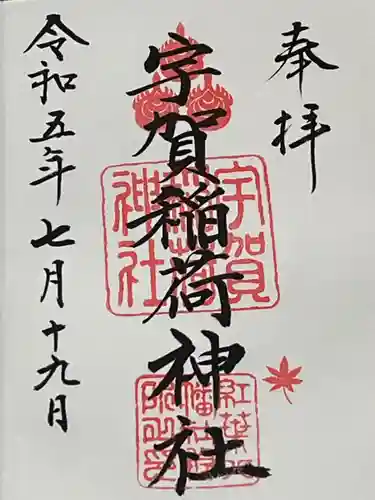 奉拝
宇賀稲荷神社
令和五年七月十九日
宇賀
稲荷
神社